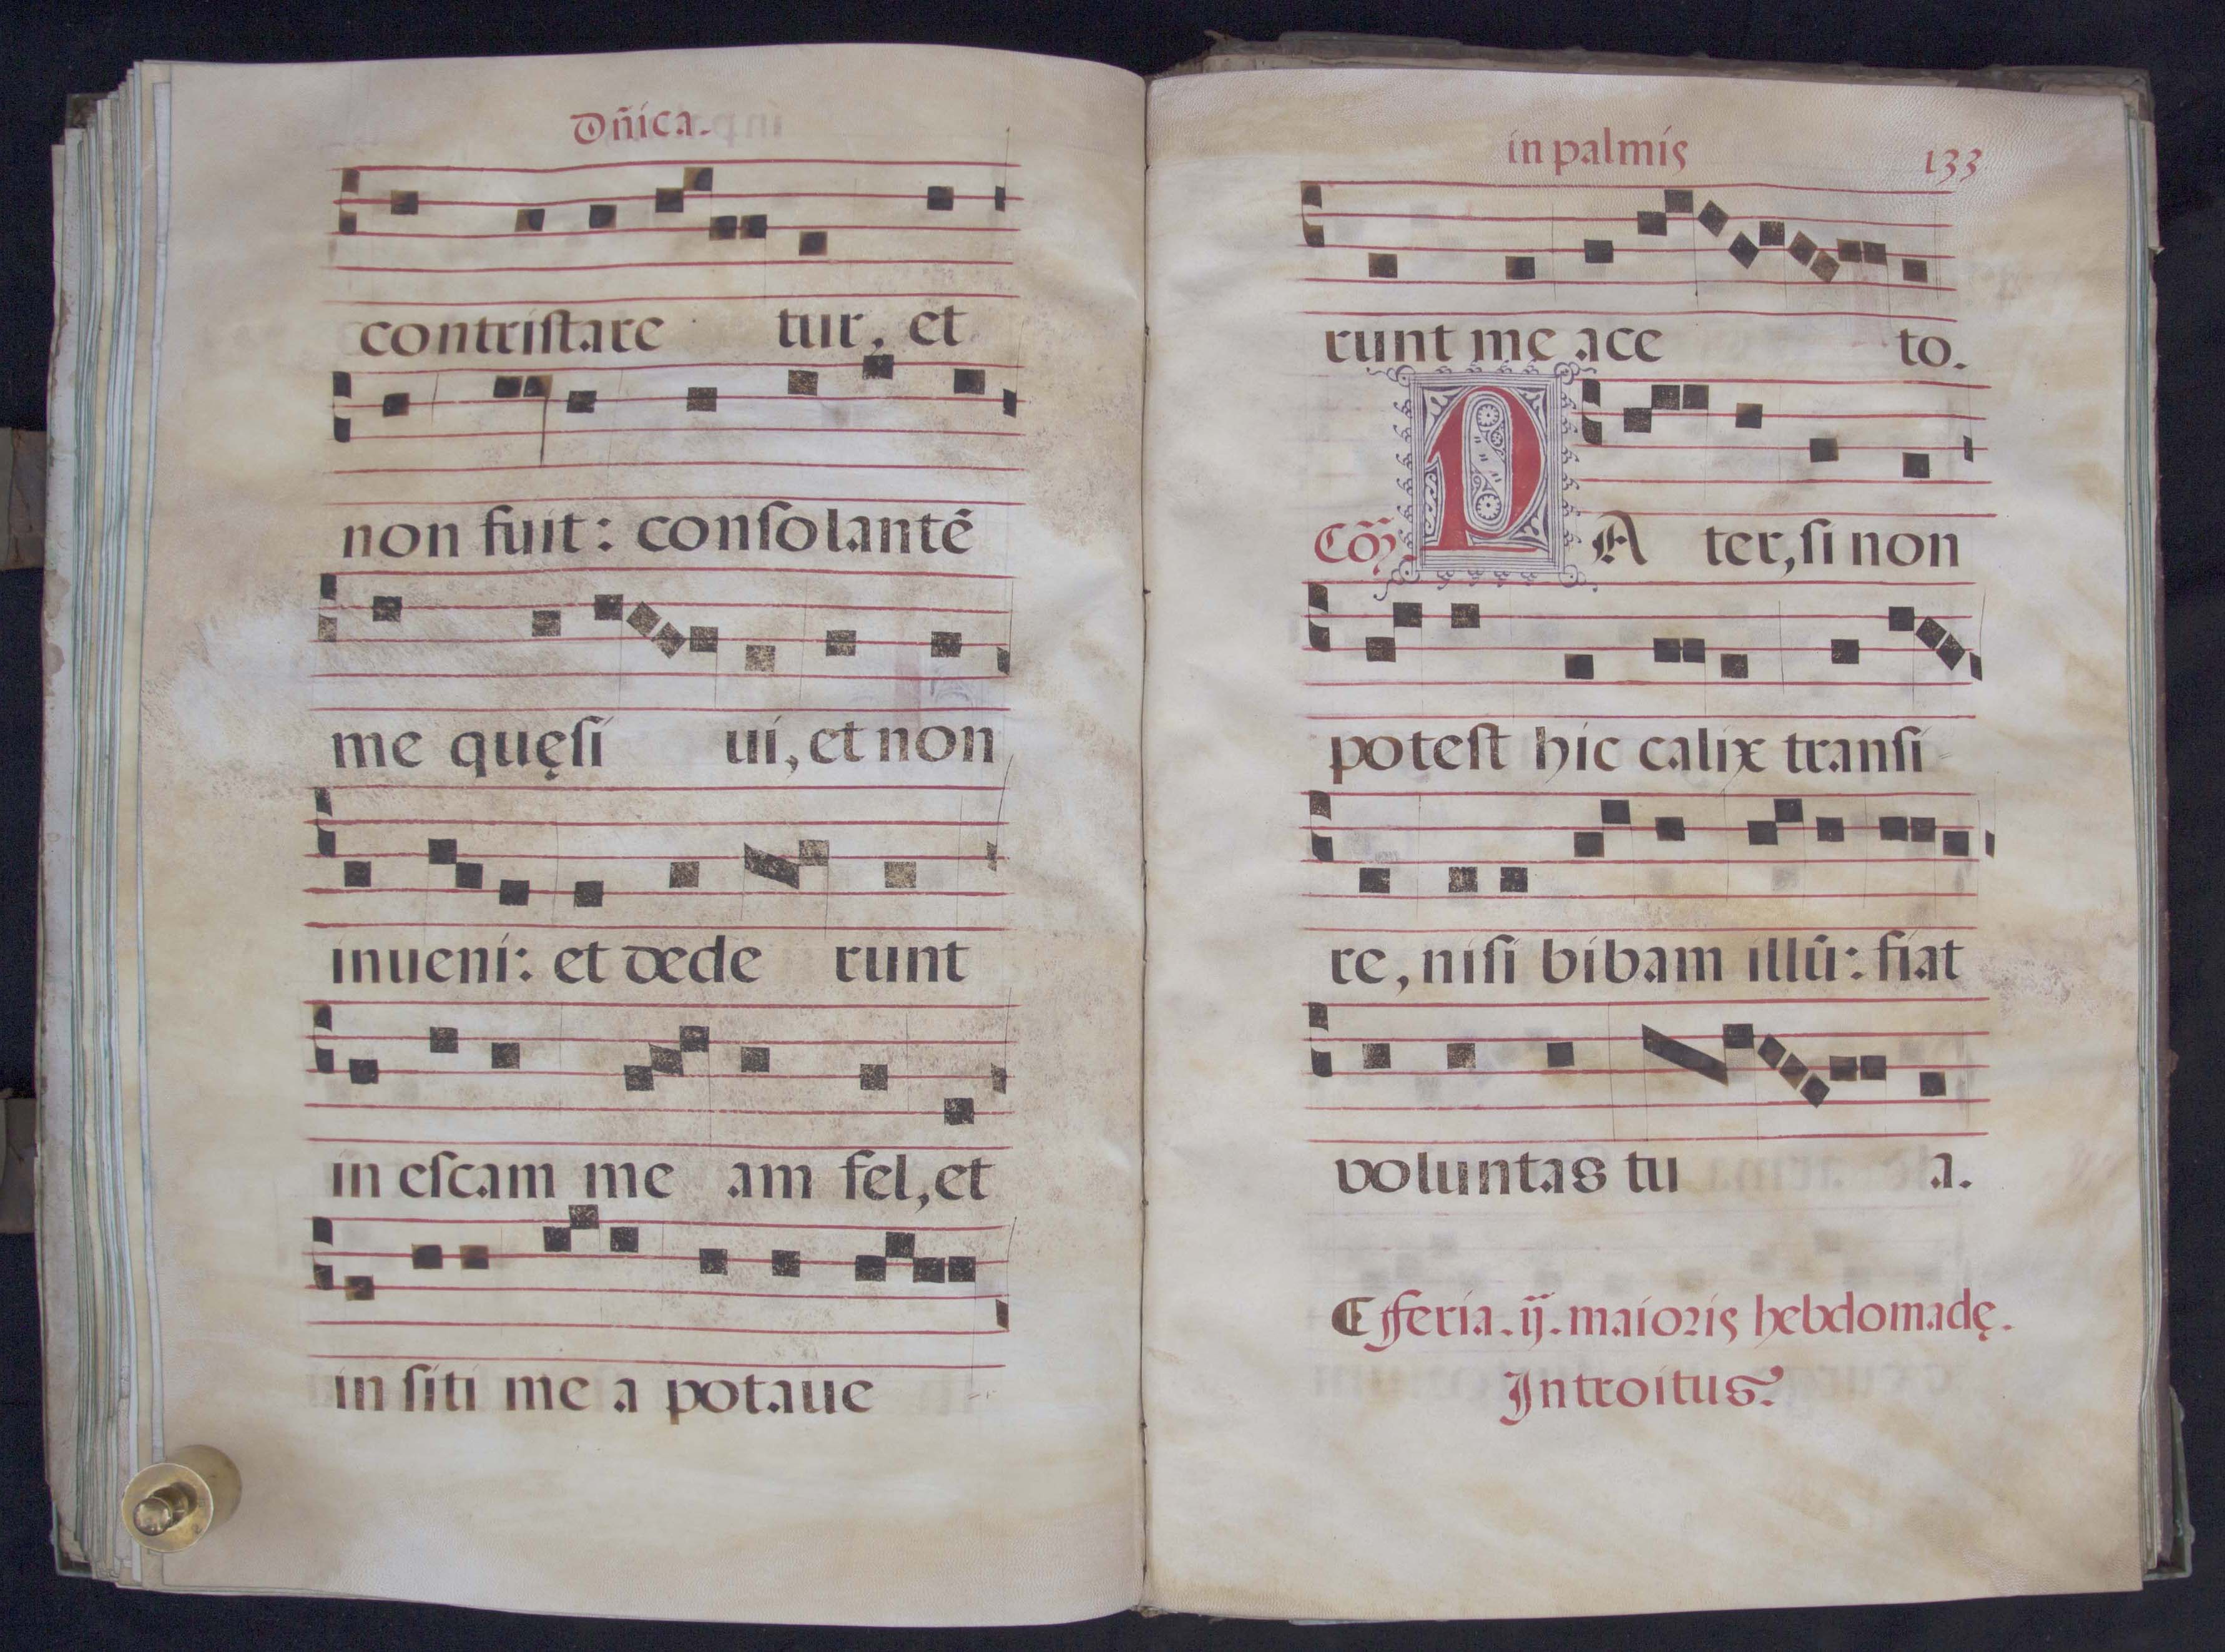 Dñica.
contristare tur, et
non fuit: consolantē
me quęsi ui, et non
inueni: et dede runt
in escam me am fel, et
in siti me a potaue
in palmis 133
runt me ace to.
Cōȝ PA ter, si non
potest hic calix transi-
re, nisi bibam illū: fiat
voluntas tu a.
¶ fferia. ij. maioris hebdomadę.
Introitus.